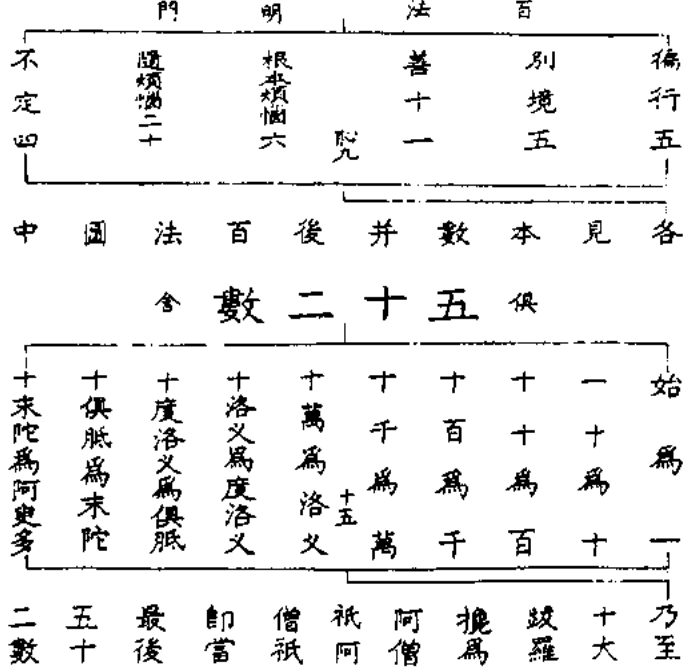 百法明門
徧行五
別境五
善十一
耻九
根本煩惱六
隨煩惱二十
不定四
各見本數并後百法圖中
俱五十二數舍
始爲一
一十爲十
十十爲百
十百爲千
十千爲萬
十五
十萬爲洛义
十洛义爲度洛义
十度洛义爲俱胝
十俱胝爲末陀
十末陀爲阿臾多
乃至
十大
跋羅
攙爲
阿僧
祇阿
僧祇
即當
最後
五十
二數